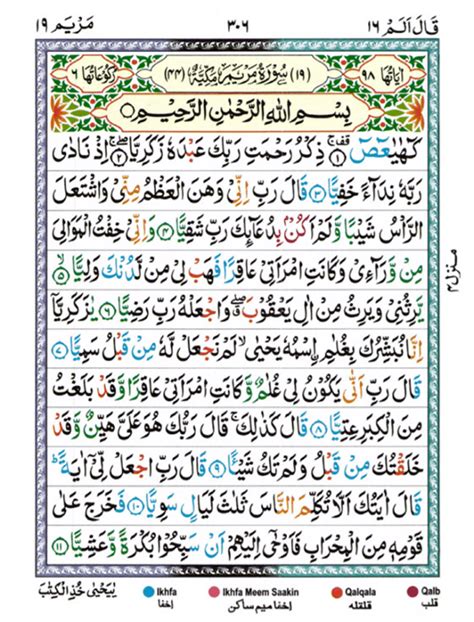 قَالَ اَلَمْ ١٦ ٣٠٦ مَرْيَم ١٩
اٰيَاتُهَا ٩٨ (١٩) سُوْرَةُ مَرْيَمَ مَكِّيَّةٌ (٤٤) رُكُوْعَاتُهَا ٦
بِسْمِ اللّٰهِ الرَّحْمٰنِ الرَّحِيْمِ
كٓهٰيٰعٓصٓ ۚ ١ ذِكْرُ رَحْمَتِ رَبِّكَ عَبْدَهٗ زَكَرِيَّا ۚ ٢ اِذْ نَادٰى
رَبَّهٗ نِدَآءً خَفِيًّا ٣ قَالَ رَبِّ اِنِّيْ وَهَنَ الْعَظْمُ مِنِّيْ وَاشْتَعَلَ
الرَّاْسُ شَيْبًا وَّلَمْ اَكُنْۢ بِدُعَآئِكَ رَبِّ شَقِيًّا ٤ وَاِنِّيْ خِفْتُ الْمَوَالِيَ
مِنْ وَّرَآءِيْ وَكَانَتِ امْرَاَتِيْ عَاقِرًا فَهَبْ لِيْ مِنْ لَّدُنْكَ وَلِيًّا ٥
يَّرِثُنِيْ وَيَرِثُ مِنْ اٰلِ يَعْقُوْبَ ۖ وَاجْعَلْهُ رَبِّ رَضِيًّا ٦ يٰزَكَرِيَّآ
اِنَّا نُبَشِّرُكَ بِغُلٰمِ ۨاسْمُهٗ يَحْيٰى ۙ لَمْ نَجْعَلْ لَّهٗ مِنْ قَبْلُ سَمِيًّا ٧
قَالَ رَبِّ اَنّٰى يَكُوْنُ لِيْ غُلٰمٌ وَّكَانَتِ امْرَاَتِيْ عَاقِرًا وَّقَدْ بَلَغْتُ
مِنَ الْكِبَرِ عِتِيًّا ٨ قَالَ كَذٰلِكَ ۚ قَالَ رَبُّكَ هُوَ عَلَيَّ هَيِّنٌ وَّقَدْ
خَلَقْتُكَ مِنْ قَبْلُ وَلَمْ تَكُ شَيْـًٔا ٩ قَالَ رَبِّ اجْعَلْ لِّيْٓ اٰيَةً ؕ
قَالَ اٰيَتُكَ اَلَّا تُكَلِّمَ النَّاسَ ثَلٰثَ لَيَالٍ سَوِيًّا ١٠ فَخَرَجَ عَلٰى
قَوْمِهٖ مِنَ الْمِحْرَابِ فَاَوْحٰٓى اِلَيْهِمْ اَنْ سَبِّحُوْا بُكْرَةً وَّعَشِيًّا ١١
منزل ٤
يٰيَحْيٰى خُذِ الْكِتٰبَ
Ikhfa اخفا
Ikhfa Meem Saakin اخفا ميم ساكن
Qalqala قلقله
Qalb قلب